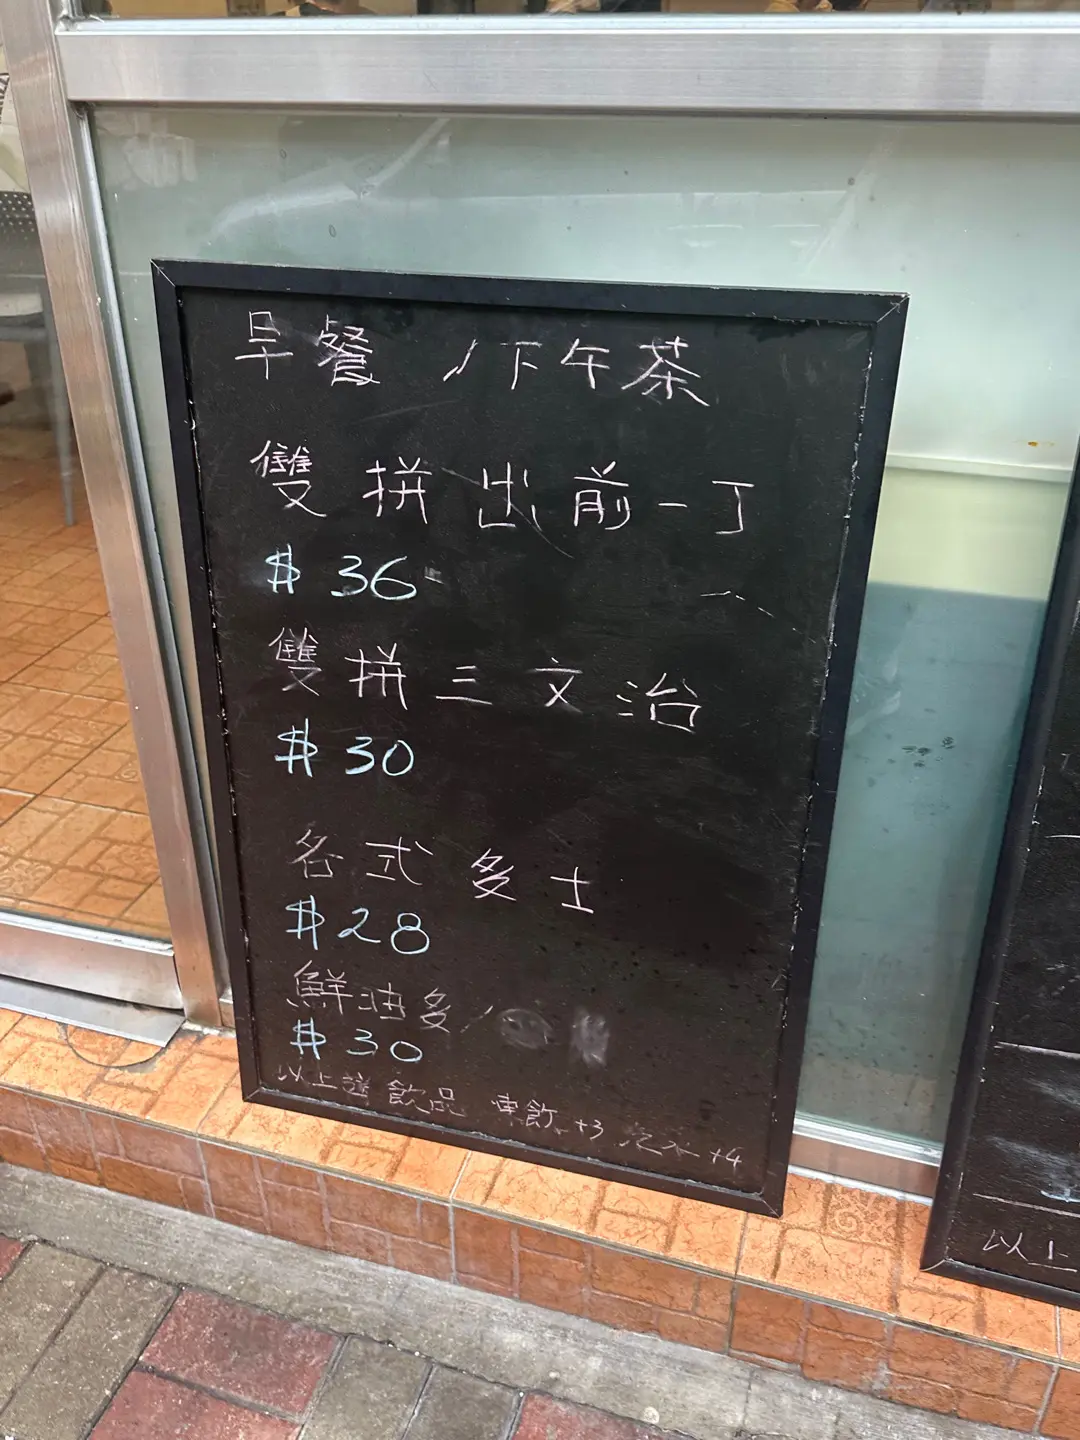 早餐/下午茶
雙拼出前一丁
$36
雙拼三文治
$30
各式多士
$28
鮮油多/
$30
以上送飲品 凍飲+3 汽水+4
以上